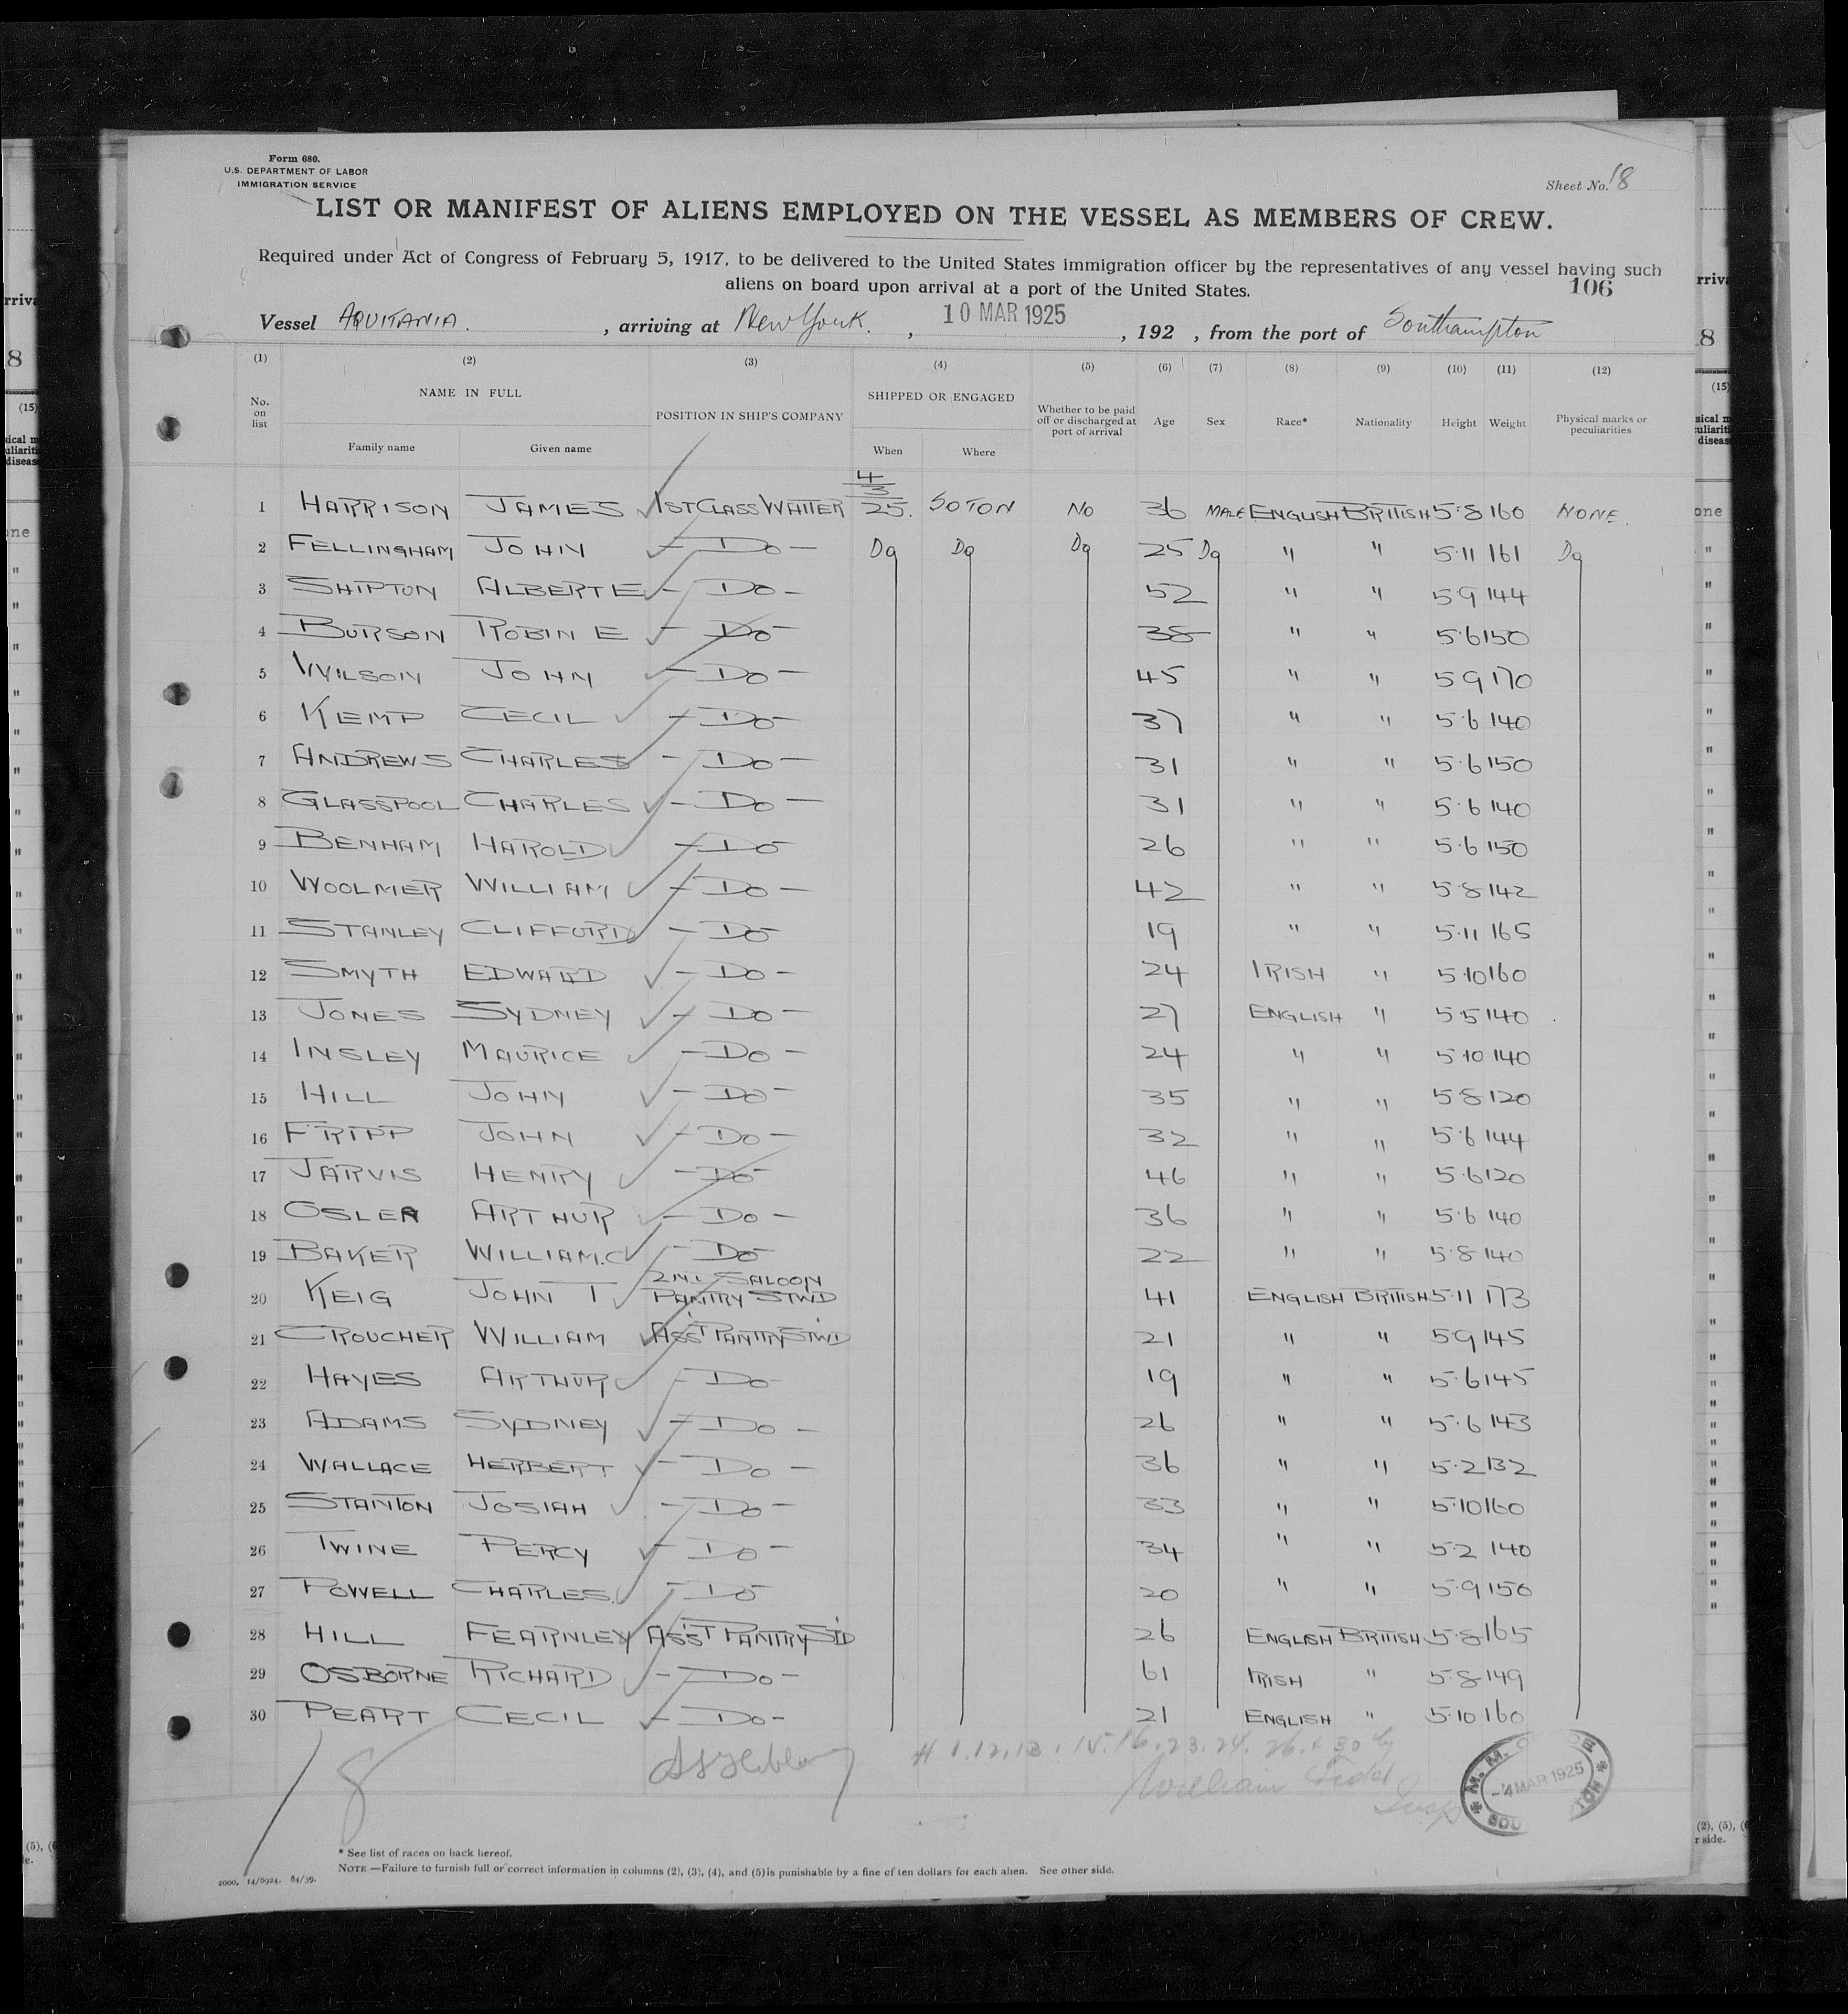 Form 680.
U.S. DEPARTMENT OF LABOR
IMMIGRATION SERVICE
Sheet No. 18
LIST OR MANIFEST OF ALIENS EMPLOYED ON THE VESSEL AS MEMBERS OF CREW.
Required under Act of Congress of February 5, 1917, to be delivered to the United States immigration officer by the representatives of any vessel having such
aliens on board upon arrival at a port of the United States.
106
Vessel AQUITANIA. , arriving at New York. , 10 MAR 1925 , 192 , from the port of Southampton
(1) (2) (3) (4) (5) (6) (7) (8) (9) (10) (11) (12)
No. on list NAME IN FULL Family name Given name POSITION IN SHIP'S COMPANY SHIPPED OR ENGAGED When Where Whether to be paid off or discharged at port of arrival Age Sex Race* Nationality Height Weight Physical marks or peculiarities
4/3
1 HARRISON JAMES 1ST CLASS WAITER 25. SOTON NO 36 MALE ENGLISH BRITISH 5·8 160 NONE.
2 FELLINGHAM JOHN - DO - Do Do Do 25 Do " " 5·11 161 Do
3 SHIPTON ALBERT E - DO - 52 " " 5·9 144
4 BURSON ROBIN E - DO - 38 " " 5·6 150
5 WILSON JOHN - DO - 45 " " 5 9 170
6 KEMP CECIL - DO - 37 " " 5·6 140
7 ANDREWS CHARLES - DO - 31 " " 5·6 150
8 GLASSPOOL CHARLES - DO - 31 " " 5·6 140
9 BENHAM HAROLD - DO 26 " " 5·6 150
10 WOOLMER WILLIAM - DO - 42 " " 5·8 142
11 STANLEY CLIFFORD - DO 19 " " 5·11 165
12 SMYTH EDWARD - DO - 24 IRISH " 5·10 160
13 JONES SYDNEY - DO - 27 ENGLISH " 5·5 140
14 INSLEY MAURICE - DO - 24 " " 5·10 140
15 HILL JOHN - DO - 35 " " 5·8 120
16 FRIPP JOHN - DO - 32 " " 5·6 144
17 JARVIS HENRY - DO 46 " " 5·6 120
18 OSLER ARTHUR - DO - 36 " " 5·6 140
19 BAKER WILLIAM.C - DO 22 " " 5·8 140
20 KEIG JOHN T 2ND SALOON PANTRY STWD 41 ENGLISH BRITISH 5·11 173
21 CROUCHER WILLIAM ASS'T PANTRY STWD 21 " " 5·9 145
22 HAYES ARTHUR - DO 19 " " 5·6 145
23 ADAMS SYDNEY - DO - 26 " " 5·6 143
24 WALLACE HERBERT - DO - 36 " " 5·2 132
25 STANTON JOSIAH - DO - 33 " " 5·10 160
26 TWINE PERCY - DO - 34 " " 5·2 140
27 POWELL CHARLES. - DO 20 " " 5·9 150
28 HILL FEARNLEY ASS'T PANTRY STD 26 ENGLISH BRITISH 5·8 165
29 OSBORNE RICHARD - DO - 61 IRISH " 5·8 149
30 PEART CECIL - DO - 21 ENGLISH " 5·10 160
8
# 1.12.13.15.16.23.24.26.&30 by
William
Insp
M. M. OFFICE
-4 MAR 1925
* See list of races on back hereof.
NOTE —Failure to furnish full or correct information in columns (2), (3), (4), and (5) is punishable by a fine of ten dollars for each alien. See other side.
2000, 14/6924. 84/39.